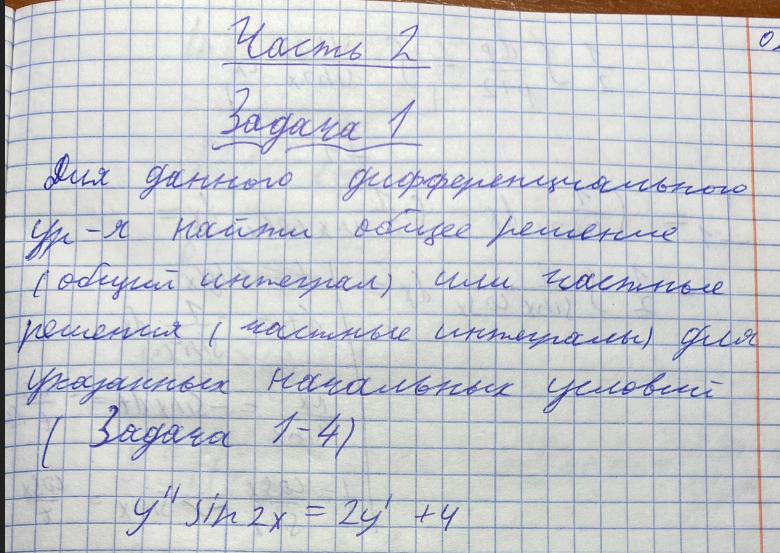 Часть 2
Задача 1
Для данного дифференциального
ур-я найти общее решение
(общий интеграл) или частные
решения (частные интегралы) для
указанных начальных условий
(Задача 1-4)
y'' sin 2x = 2y' + 4